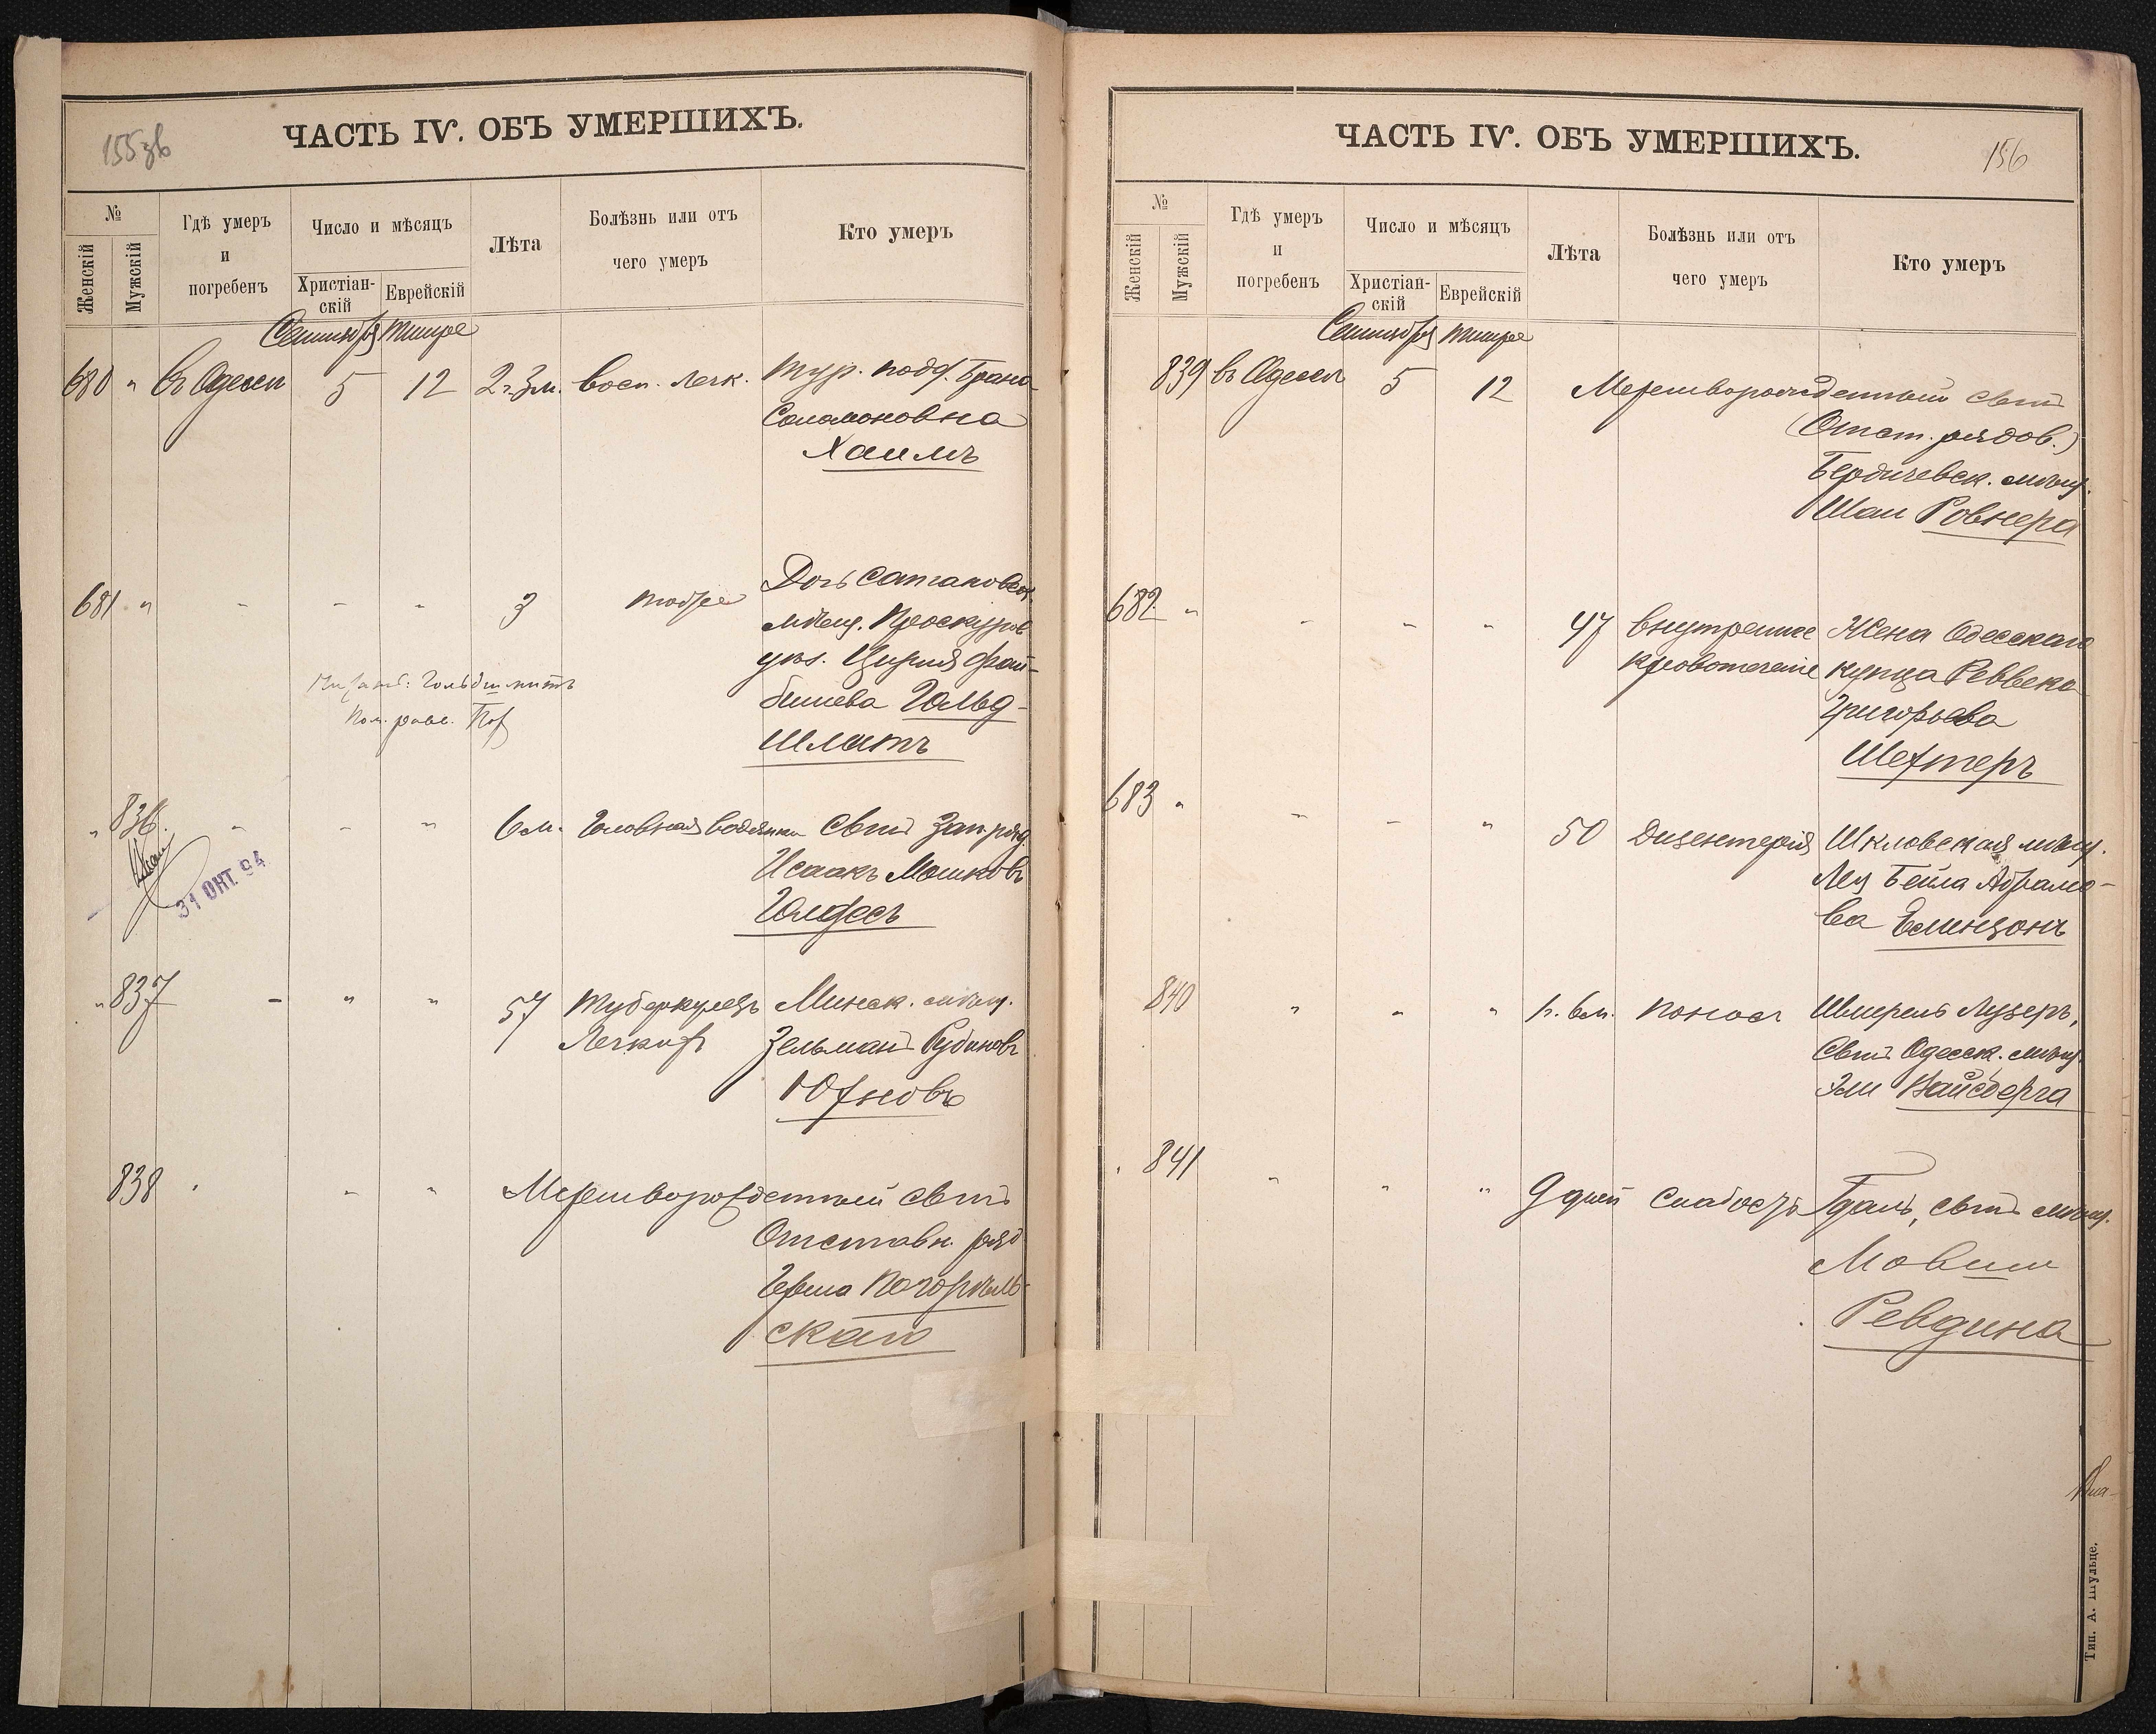 155 зв
ЧАСТЬ IV. ОБЪ УМЕРШИХЪ.
№
Женскій
Мужскій
Гдѣ умеръ
и
погребенъ
Число и мѣсяцъ
Христіан-
скій
Еврейскій
Лѣта
Болѣзнь или отъ
чего умеръ
Кто умеръ
Сентября Тишре
680 " въ Одессѣ 5 12 2 г. 3 м. Восп. легк. Тур. подд. Брана
Соломоновна
Хаимъ
681 " - - - 3 Дочь Сатановск.
мѣщ. Проскуров.
уѣз. Цирля Фай-
бишева Гольд-
шмитъ
" 836. - - " 6 м. Головная водянка Сынъ Зап. ряд.
Исаакъ Мошковъ
31 ОКТ. 94
" 837 - " " 57 Туберкулезъ Минск. мѣщ.
Легкихъ Зельманъ Рубиновъ
Юхновъ
838 " " " Мертворожденный сынъ
Отставн. ряд.
Герша Погорѣль-
скаго
156
ЧАСТЬ IV. ОБЪ УМЕРШИХЪ.
№
Женскій
Мужскій
Гдѣ умеръ
и
погребенъ
Число и мѣсяцъ
Христіан-
скій
Еврейскій
Лѣта
Болѣзнь или отъ
чего умеръ
Кто умеръ
Сентября Тишре
839 въ Одессѣ 5 12 Мертворожденный сынъ
(Отст. рядов.)
Бердичевск. мѣщ.
Шаи Ровнера
682 " - - " 47 Внутреннее Жена Одесскаго
кровотеченіе купца Реввека
Григорьева
Шехтеръ
683 " - - " 50 Дизентерія Шкловская мѣщ.
Лея Бейла Абрамо-
ва Елинзонъ
840 " " " 1 г. 6 м. Поносъ Шмерель Лузеръ,
Сынъ Одесск. мѣщ.
Эли Вайсберга
" 841 - " " 9 дней Слабость Гдаль, сынъ мѣщ.
Мовши
Ревдина
Тип. А. Шульце.